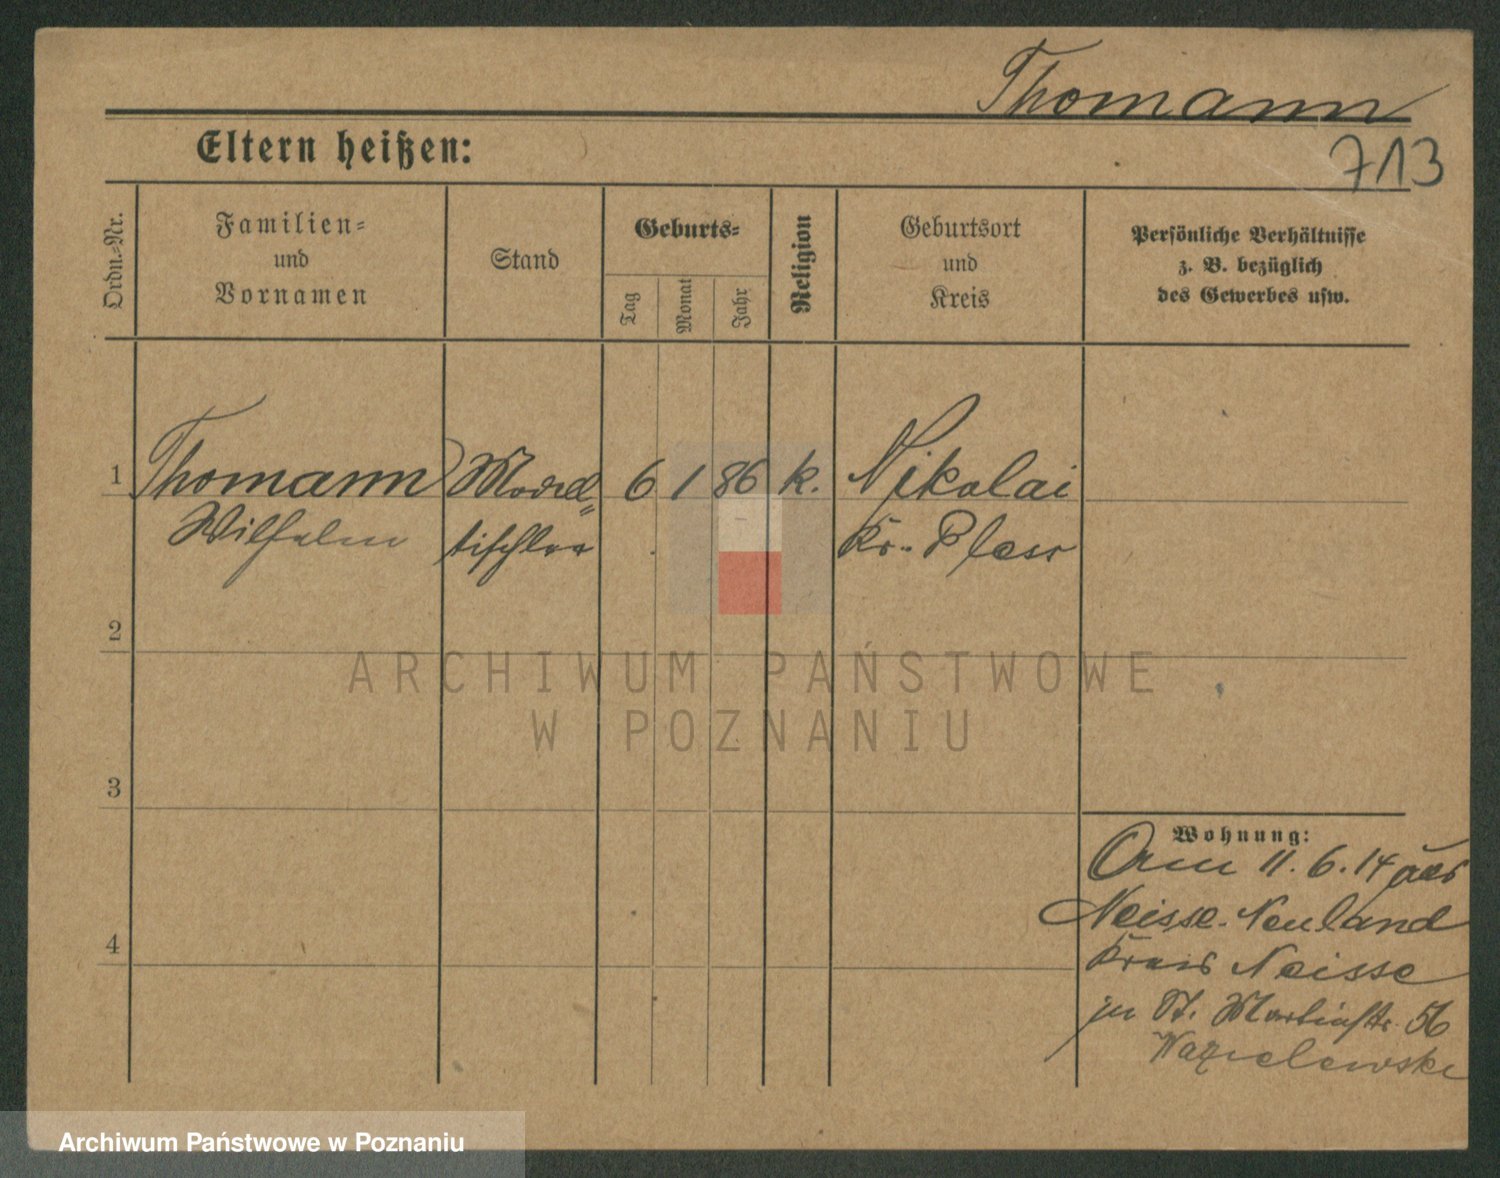 Thomann
713
Eltern heißen:
Ordn.-Nr.
Familien-
und
Vornamen
Stand
Geburts-
Tag
Monat
Jahr
Religion
Geburtsort
und
Kreis
Persönliche Verhältnisse
z. B. bezüglich
des Gewerbes usw.
1 Thomann Model= 6 1 86 k. Nikolai
Wilhelm tischler Kr. Pless
2
ARCHIWUM PAŃSTWOWE
W POZNANIU
3
Wohnung:
Am 11.6.14 aus
4
Neisse-Neuland
Kreis Neisse
zu St. Martinstr. 56
Archiwum Państwowe w Poznaniu